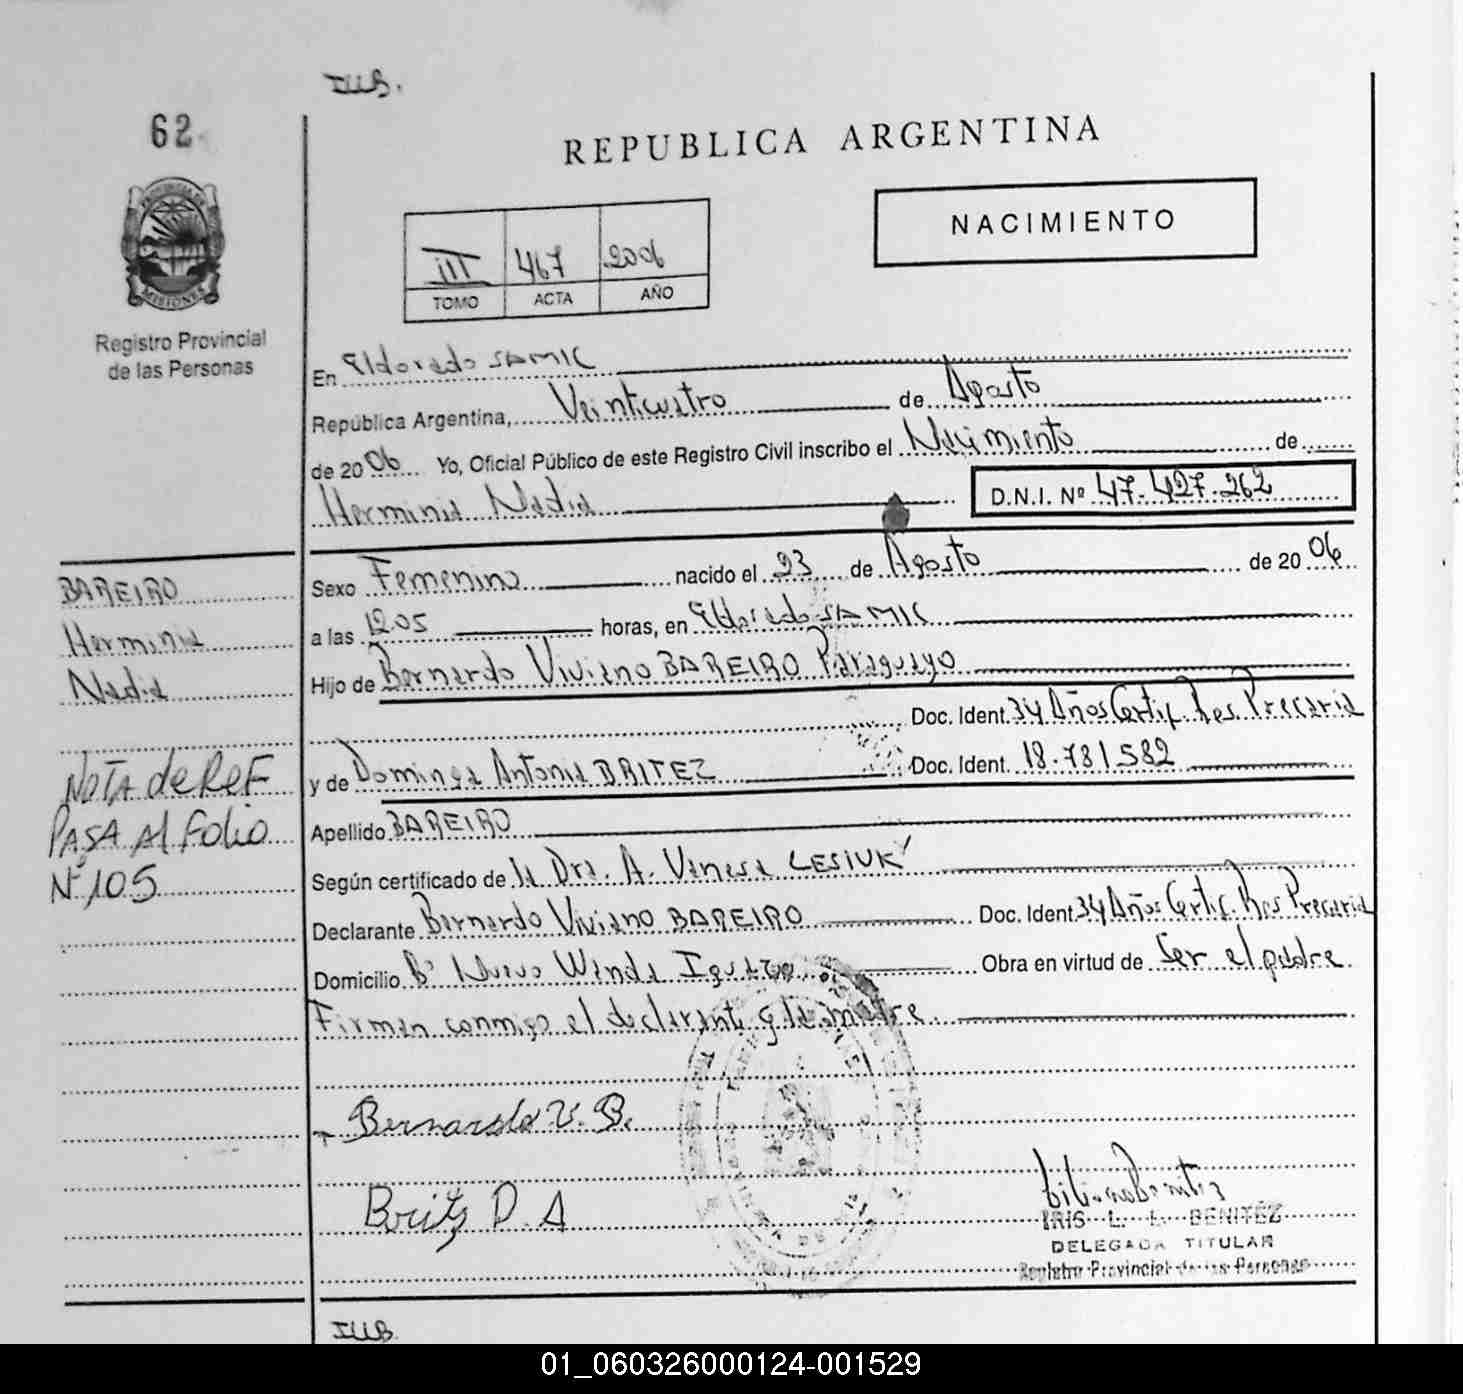 IUB.
62
REPUBLICA ARGENTINA
NACIMIENTO
III 467 2006
TOMO ACTA AÑO
PROVINCIA DE
MISIONES
Registro Provincial
de las Personas
En Eldorado SAMIC
República Argentina, Veinticuatro de Agosto
de 2006 Yo, Oficial Público de este Registro Civil inscribo el Nacimiento de
Herminia Nadia D.N.I. Nº 47.427.262
Sexo Femenino nacido el 23 de Agosto de 2006
a las 12.05 horas, en Eldorado SAMIC
Hijo de Bernardo Viviano BAREIRO Paraguayo
Doc. Ident. 34 Años Certif. Res Precaria
y de Dominga Antonia BRITEZ Doc. Ident. 18.781.582
Apellido BAREIRO
Según certificado de la Dra. A. Vanesa LESIUK
Declarante Bernardo Viviano BAREIRO Doc. Ident. 34 Años Certif. Res Precaria
Domicilio Bº Nuevo Wanda Iguazu Obra en virtud de Ser el padre
Firman conmigo el declarante y la madre
BAREIRO
Herminia
Nadia
NOTA de Ref
PASA Al folio
Nº 105
Bernardo V. B.
Britz D. A
IRIS L. L. BENITEZ
DELEGADA TITULAR
Registro Provincial de las Personas
IUB
01_060326000124-001529